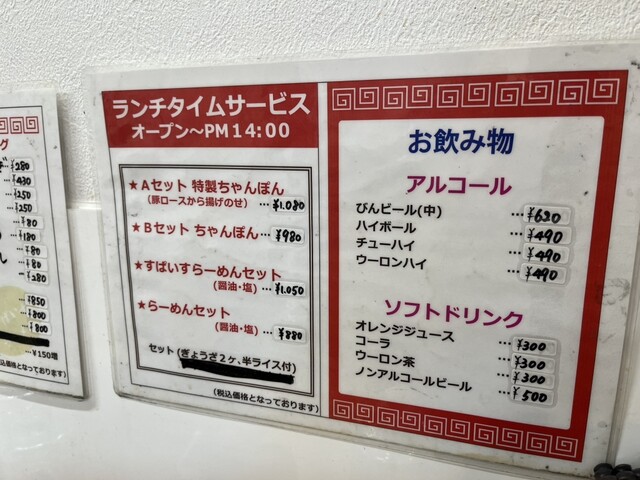 グ
¥280
¥430
¥250
¥250
¥80
¥180
¥80
¥80
¥280
¥850
¥800
¥800
…¥150増
(税込価格となっております)
ランチタイムサービス
オープン～PM14:00
★Aセット 特製ちゃんぽん
(豚ロースから揚げのせ) …¥1.080
★Bセット ちゃんぽん…¥980
★すぱいすらーめんセット
(醤油・塩) …¥1.050
★らーめんセット
(醤油・塩) …¥880
セット (ぎょうざ2ヶ、半ライス付)
(税込価格となっております)
お飲み物
アルコール
びんビール(中) …¥630
ハイボール …¥490
チューハイ …¥490
ウーロンハイ …¥490
ソフトドリンク
オレンジジュース …¥300
コーラ …¥300
ウーロン茶 …¥300
ノンアルコールビール …¥500